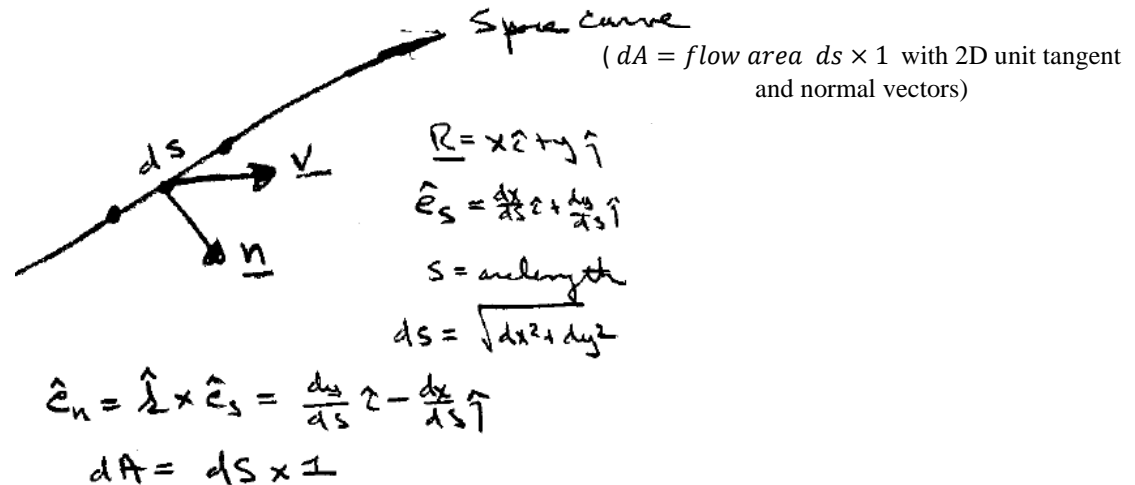 Space curve
( 𝑑𝐴 = 𝑓𝑙𝑜𝑤 𝑎𝑟𝑒𝑎 𝑑𝑠 × 1 with 2D unit tangent
and normal vectors)
ds
V
n
R = xî + yĵ
ê_s = dx/ds î + dy/ds ĵ
s = arclength
ds = √dx² + dy²
ê_n = k̂ × ê_s = dy/ds î − dx/ds ĵ
dA = ds × 1